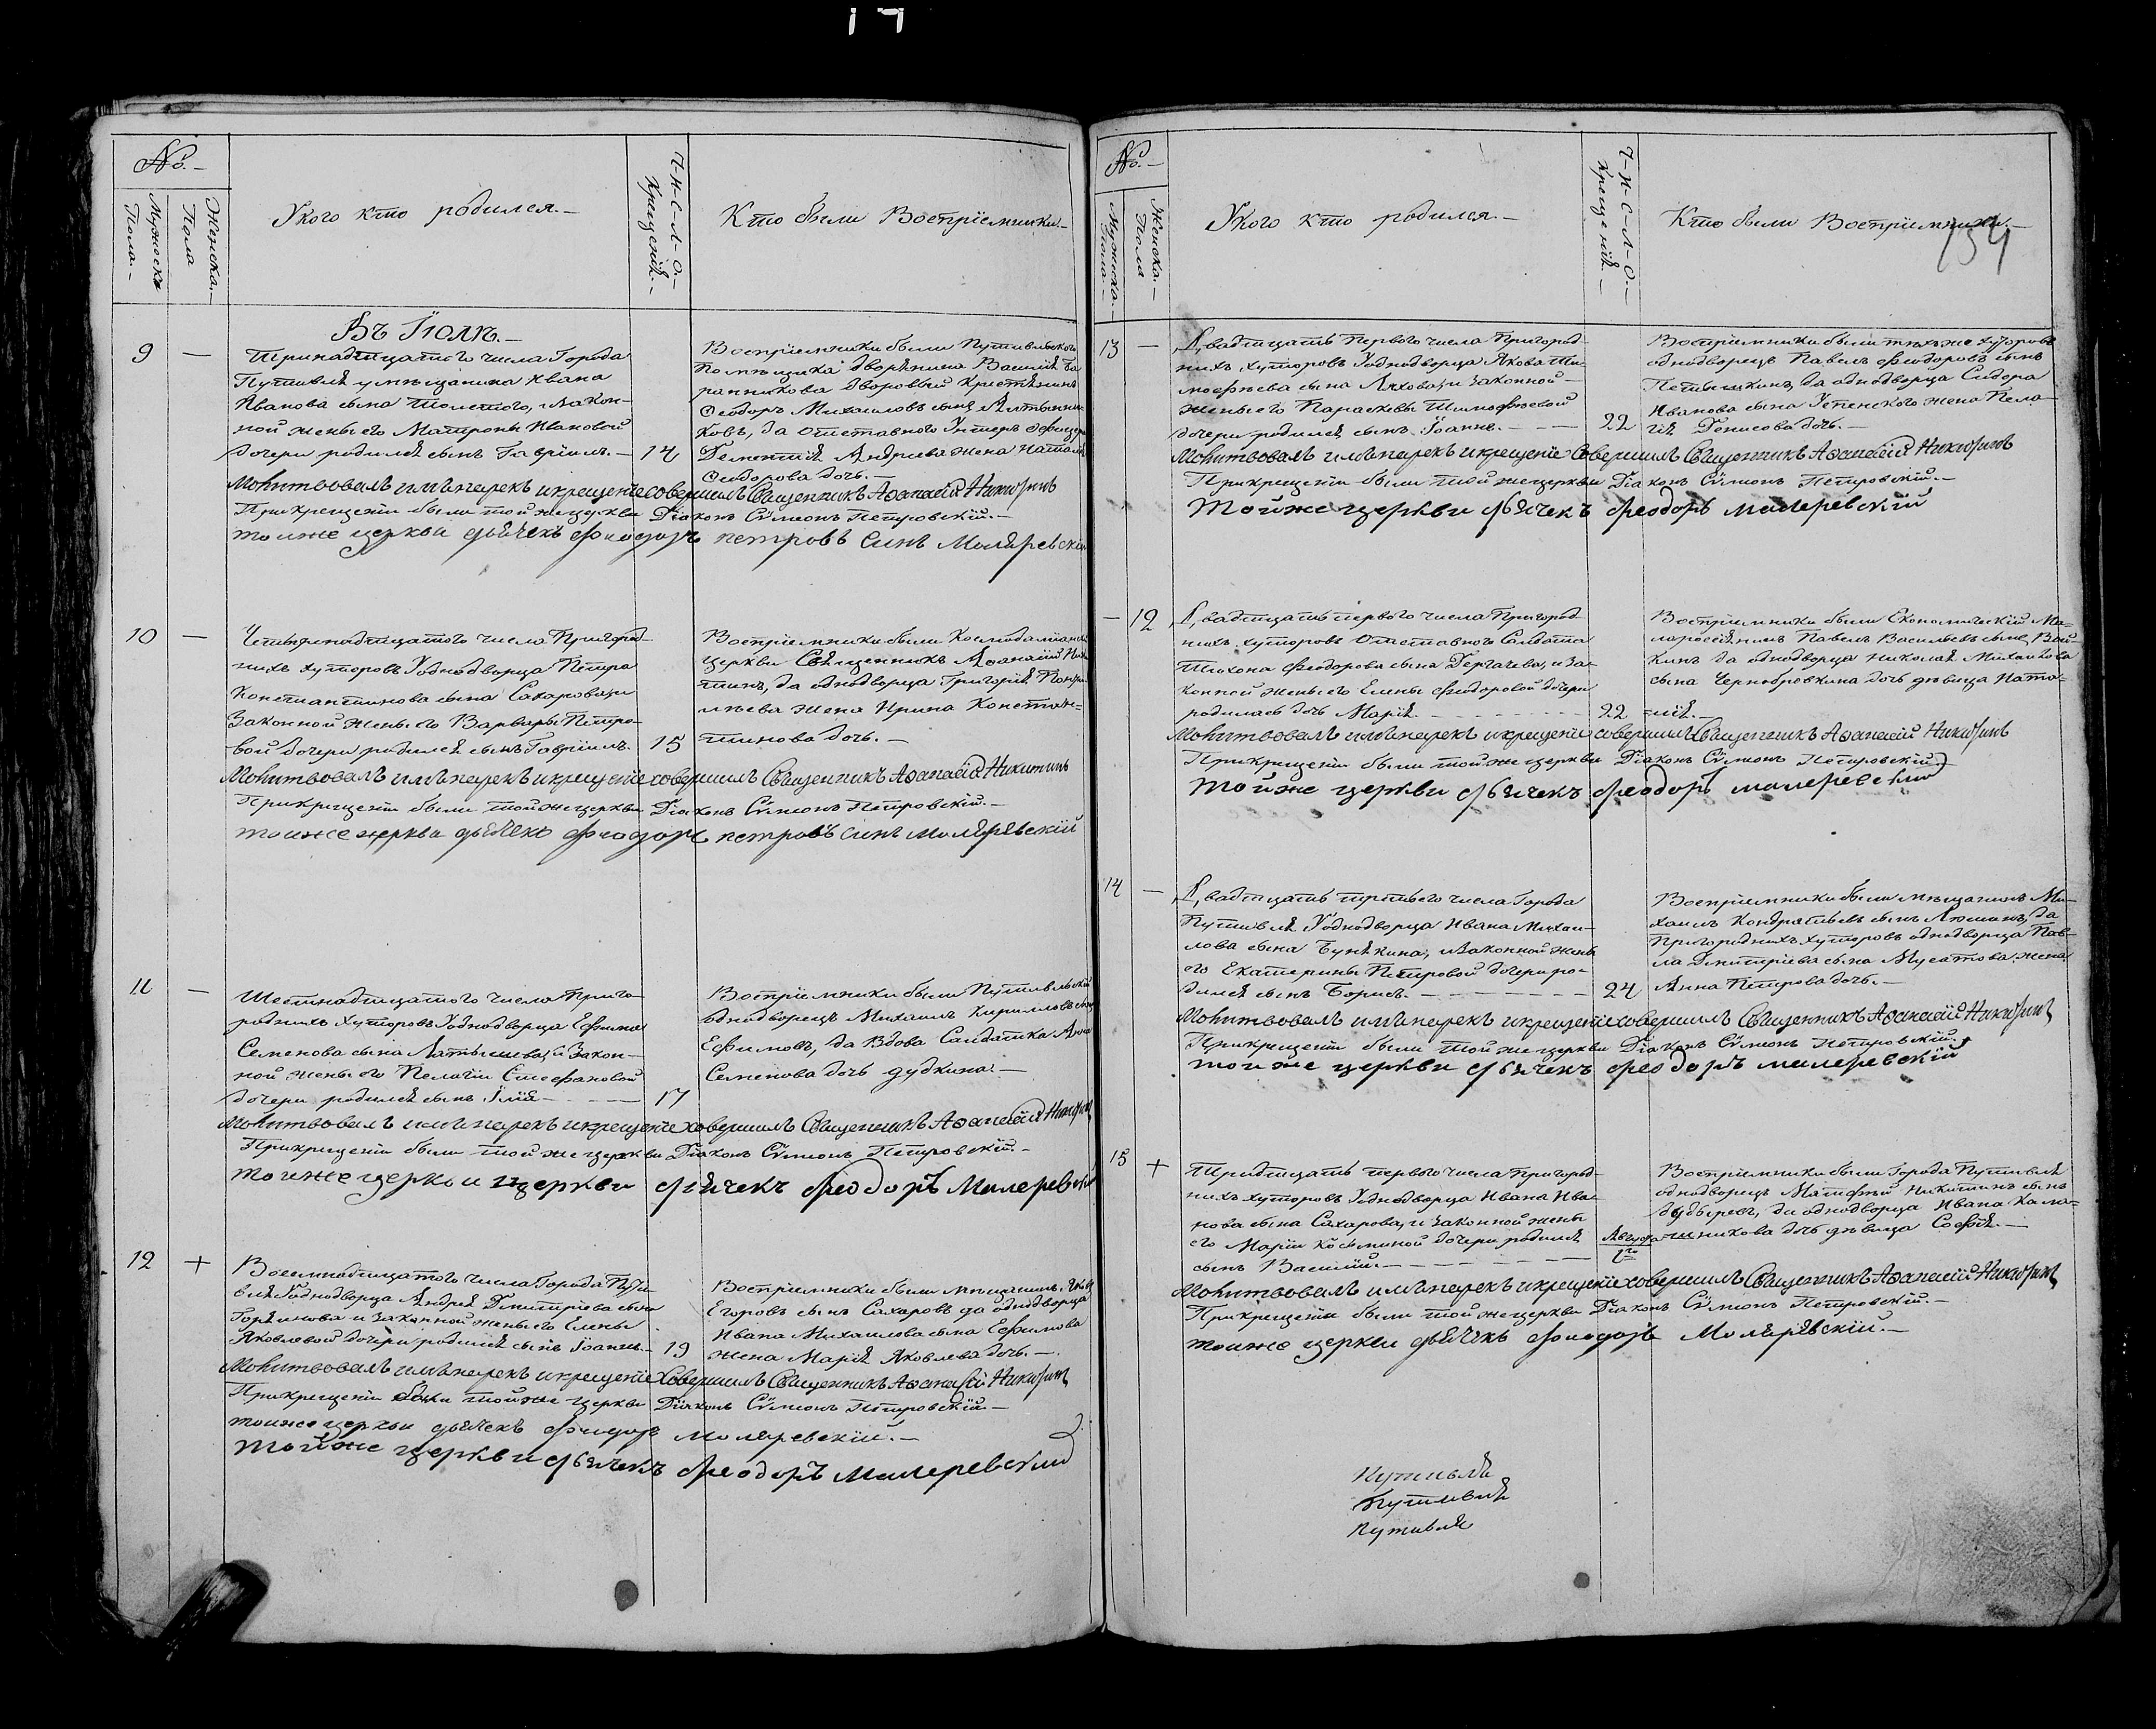 17
№.
Мужеска Пола.
Женска. Пола
У кого кто родился.
Ч-И-С-Л-О. Крещенія.
Кто были Воспріемники.
Въ Іюлѣ.
9
—
Тринадцатого числа Города
Путивля у мѣщанина Ивана
Иванова сына Толстого, и закон-
ной жены его Матроны Ивановой
дочери родился сынъ Гавріилъ.
14
Воспріемники были Путивльского
Помѣщика дворянина Василія Ба
ранникова дворовый крестянинъ
Ѳеодоръ Михаиловъ сынъ
ковъ, да отставного Унтеръ офицера
Дементія Андриева жена Наталія
Ѳеодорова дочь.
Молитвовалъ имя нарекъ и крещеніе совершилъ Священникъ Аѳанасій Никитинъ
При крещеніи были той же церкви Діаконъ Сѵмеонъ Петровскій.
тоиже церкви дьячекъ Феодоръ петровъ синъ Маляревскій
10
—
Четырнадцатого числа Пригород-
нихъ хуторовъ У однодворца Петра
Константинова сына Сахарова, и
Законной жены его Варвары Петро-
вой дочери родился сынъ Гавріилъ.
15
Воспріемники были Космодаміанской
церкви Священникъ Аѳанасій Ники
тинъ, да однодворца Григорія
жена Ирина Констан-
тинова дочь.
Молитвовалъ имя нарекъ и крещеніе совершилъ Священникъ Аѳанасій Никитинъ
При крещеніи были той же церкви Діаконъ Сѵмеонъ Петровскій.
тоиже церкви дьячекъ Феодоръ петровъ синъ Маляревскій
11
—
Шестнадцатого числа Приго-
роднихъ хуторовъ У однодворца Ефима
Семенова сына Латышева, и Закон-
ной жены его Пелагіи Стефановой
дочери родился сынъ Ілія
17
Воспріемники были Путивльскій
однодворецъ Михаилъ Кирилловъ сынъ
Ефимовъ, да Вдова Салдатка Анна
Семенова дочь дудкина.
Молитвовалъ имя нарекъ и крещеніе совершилъ Священникъ Аѳанасій Никитинъ
При крещеніи были той же церкви Діаконъ Сѵмеонъ Петровскій.
тоиже церкви церкви дьячекъ Феодоръ Маляревскій
12
+
Восемнадцатого числа Города Пути
вля У однодворца Андрея Дмитріева сына
Горяинова и законной жены его Елены
Яковлевой дочери родился сынъ Іоаннъ.
19
Воспріемники были мѣщанинъ
Егоровъ сынъ Сахаровъ да однодворца
Ивана Михаилова сына Ефимова
жена Марія Яковлева дочь.
Молитвовалъ имя нарекъ и крещеніе совершилъ Священникъ Аѳанасій Никитинъ
При крещеніи были той же церкви Діяконъ Сѵмеонъ Петровскій
тоиже церкви дьячекъ Феодоръ Маляревскій.
той же церкви дьячекъ Феодоръ Маляревский
№.
Мужеска. Пола.
Женска. Пола
У кого кто родился.
Ч-И-С-Л-О. Крещенія.
Кто были Воспріемники.
134
13
—
Двадцать Перваго числа Пригород-
нихъ хуторовъ У однодворца Якова Ти-
моѳѣева сына Ляхова, и законной
жены его Параскевы Тимоѳѣевой
дочери родился сынъ Іоаннъ.
22
Воспріемники были тѣхъ же хуторовъ
однодворецъ Павелъ Феодоровъ сынъ
да однодворца Сидора
Иванова сына Успенского жена Пела-
гія Денисова дочь.
Молитвовалъ имя нарекъ и крещеніе совершилъ Священникъ Аѳанасій Никитинъ
При крещеніи были той же церкви Діаконъ Сѵмеонъ Петровскій.
Той же церкви дьячекъ Феодоръ Маляревскій
—
12
Двадцать перваго числа Пригород-
нихъ хуторовъ Отставного Солдата
Тихона Феодорова сына Дергачева, и за-
конной жены его Елены Феодоровой дочери
родилась дочь Марія.
22
Воспріемники были Економическій Ма-
лоросіянинъ Павелъ Васильевъ сынъ
кинъ да однодворца Николая Михаилова
сына Чернобровкина дочь дѣвица Ната-
лія.
Молитвовалъ имя нарекъ и крещеніе совершилъ Священникъ Аѳанасій Никитинъ
При крещеніи были той же церкви Діаконъ Сѵмеонъ Петровскій.
той же церкви дьячекъ Феодоръ Маляревский
14
—
Двадцать третьего числа Города
Путивля У однодворца Ивана Михаи-
лова сына Бунякина, и законной жены
его Екатерины Петровой дочери ро-
дился сынъ Борисъ.
24
Воспріемники были мѣщанинъ Ми-
хаилъ Кондратьевъ сынъ да
Пригородныхъ хуторовъ однодворца Пав-
ла Дмитріева сына Мусатова жена
Анна Петрова дочь.
Молитвовалъ имя нарекъ и крещеніе совершилъ Священникъ Аѳанасій Никитинъ
При крещеніи были той же церкви Діаконъ Сѵмеонъ Петровскій.
той же церкви дьячекъ Феодоръ маляревскій
15
+
Тридцать перваго числа Пригород-
нихъ хуторовъ У однодворца Ивана Ива-
нова сына Сахарова, и законной жены
его Маріи Косьминой дочери родился
сынъ Василій.
Августа
1го
Воспріемники были Города Путивля
однодворецъ Матфѣй Никитинъ сынъ
да однодворца Ивана Кала-
шникова дочь дѣвица Софія.
Молитвовалъ имя нарекъ и крещеніе совершилъ Священникъ Аѳанасій Никитинъ
При крещеніи были той же церкви Діаконъ Сѵмеонъ Петровскій.
тоиже церкви дьячекъ Феодоръ Маляревскій.
Путивль
Путивля
Путивля